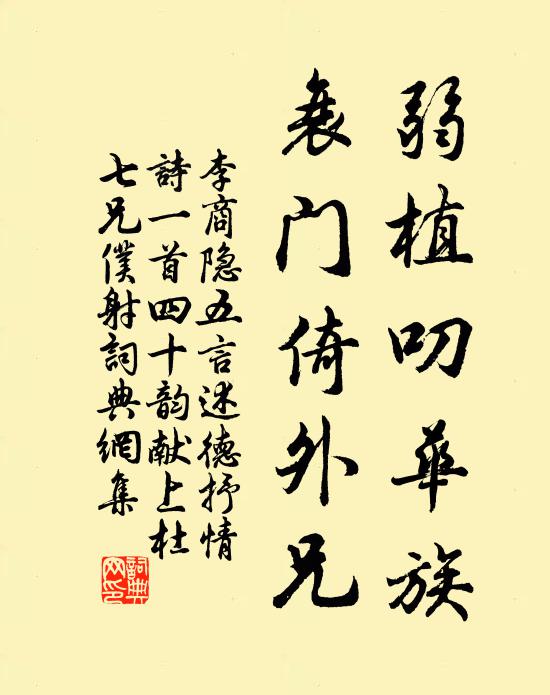 弱植叨華族
衰门倚外兄
李商隐五言述德抒情
詩一首四十韵献上杜
七兄僕射詞典網集
詞典
网印